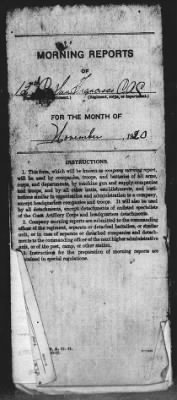 MORNING REPORTS
OF
San Francisco CAC
(Regiment, corps, or department.)
FOR THE MONTH OF
November, 1920
INSTRUCTIONS.
1. This form, which will be known as company morning report,
will be used by companies, troops, and batteries of all arms,
corps, and departments, by machine gun and supply companies
and troops, and by all other units, establishments, and insti-
tutions similar in organization and administration to a company,
except headquarters companies and troops. It will also be used
by all detachments, except detachments of enlisted specialists
of the Coast Artillery Corps and headquarters detachments.
2. Company morning reports are submitted to the commanding
officer of the regiment, separate or detached battalion, or similar
unit, or in case of separate or detached companies and detach-
ments to the commanding officer of the next higher administrative
unit, or of the post, camp, or other station.
3. Instructions for the preparation of morning reports are
contained in special regulations.